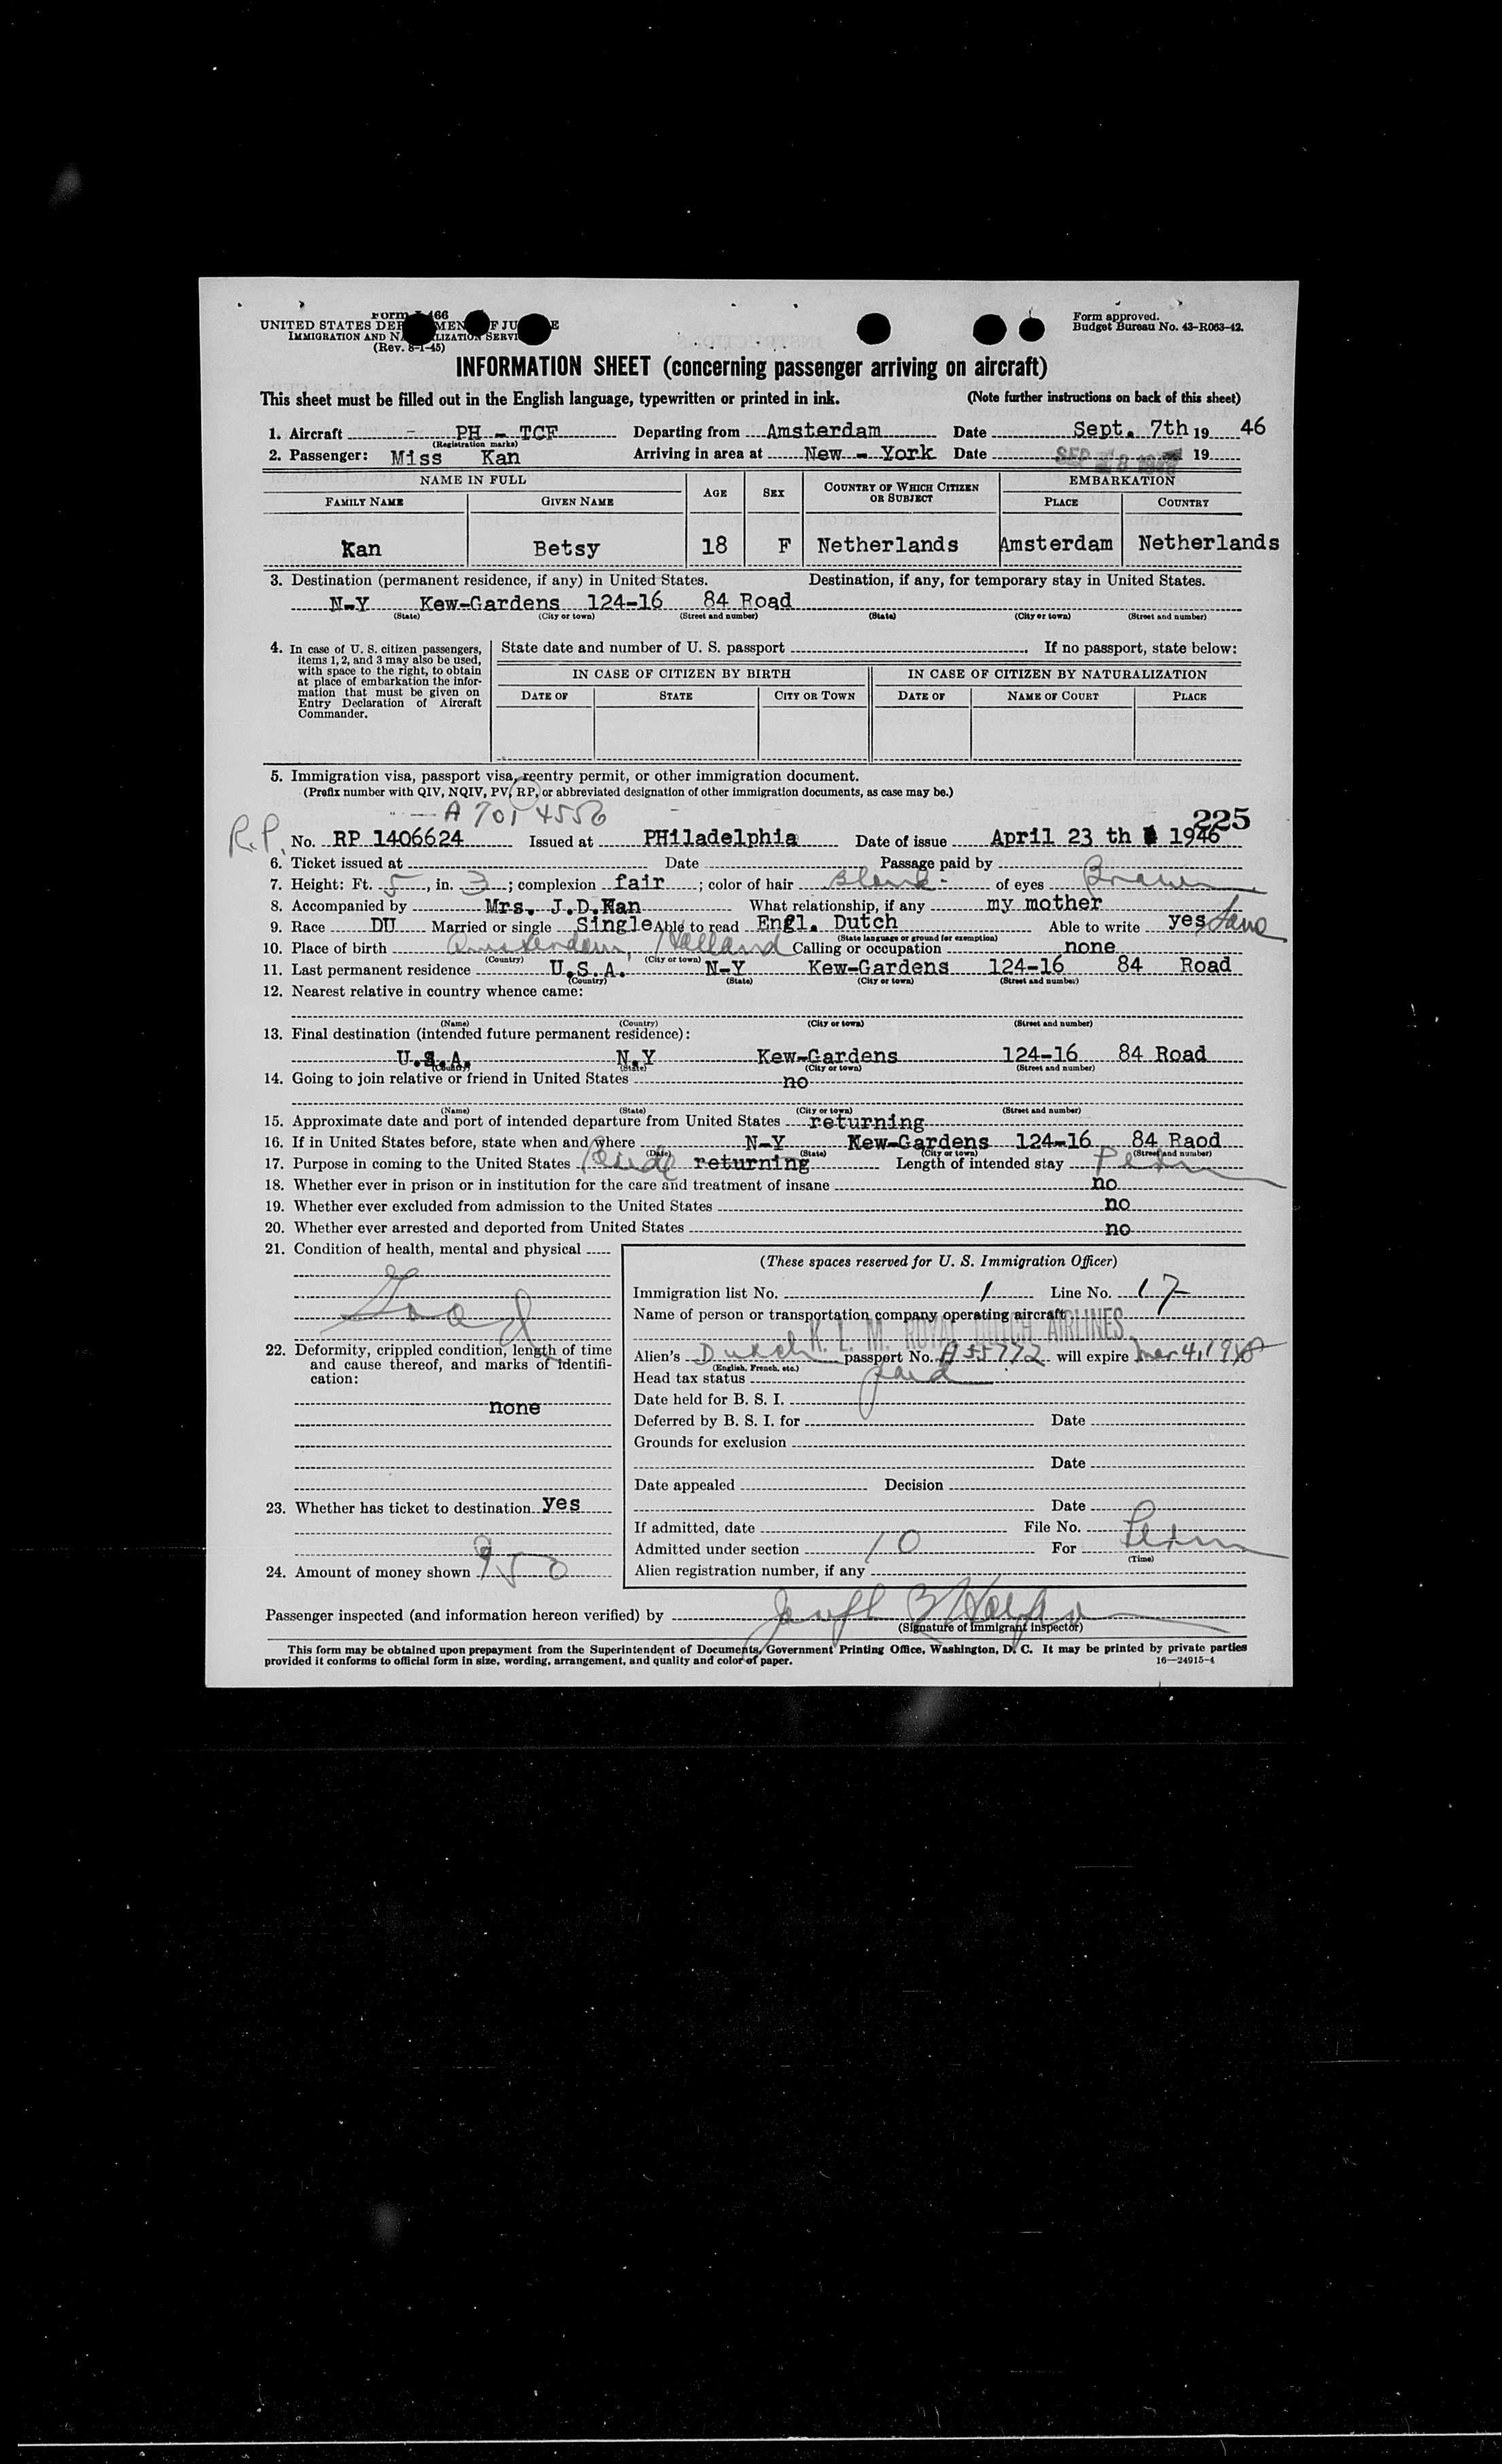 Form I-466
UNITED STATES DEPARTMENT OF JUSTICE
IMMIGRATION AND NATURALIZATION SERVICE
(Rev. 8-1-45)
Form approved.
Budget Bureau No. 43-R063-42.
INFORMATION SHEET (concerning passenger arriving on aircraft)
This sheet must be filled out in the English language, typewritten or printed in ink. (Note further instructions on back of this sheet)
1. Aircraft - PH - TCF Departing from Amsterdam Date Sept. 7th 19 46
(Registration marks)
2. Passenger: Miss Kan Arriving in area at New - York Date SEP 8 1946 19
NAME IN FULL AGE SEX COUNTRY OF WHICH CITIZEN OR SUBJECT EMBARKATION
FAMILY NAME GIVEN NAME PLACE COUNTRY
Kan Betsy 18 F Netherlands Amsterdam Netherlands
3. Destination (permanent residence, if any) in United States. Destination, if any, for temporary stay in United States.
N-Y Kew-Gardens 124-16 84 Road
(State) (City or town) (Street and number) (State) (City or town) (Street and number)
4. In case of U. S. citizen passengers, items 1, 2, and 3 may also be used, with space to the right, to obtain at place of embarkation the information that must be given on Entry Declaration of Aircraft Commander.
State date and number of U. S. passport If no passport, state below:
IN CASE OF CITIZEN BY BIRTH IN CASE OF CITIZEN BY NATURALIZATION
DATE OF STATE CITY OR TOWN DATE OF NAME OF COURT PLACE
5. Immigration visa, passport visa, reentry permit, or other immigration document.
(Prefix number with QIV, NQIV, PV, RP, or abbreviated designation of other immigration documents, as case may be.)
A 7014556
225
R.P. No. RP 1406624 Issued at PHiladelphia Date of issue April 23 th 1946
6. Ticket issued at Date Passage paid by
7. Height: Ft. 5, in. 3; complexion fair; color of hair Blond of eyes Brown
8. Accompanied by Mrs. J.D.Kan What relationship, if any my mother
9. Race DU Married or single Single Able to read Engl. Dutch Able to write yes Same
(State language or ground for exemption)
10. Place of birth Amsterdam, Holland Calling or occupation none
(Country) (City or town)
11. Last permanent residence U.S.A. N-Y Kew-Gardens 124-16 84 Road
(Country) (State) (City or town) (Street and number)
12. Nearest relative in country whence came:
(Name) (Country) (City or town) (Street and number)
13. Final destination (intended future permanent residence):
U.S.A. N.Y Kew-Gardens 124-16 84 Road
(Country) (State) (City or town) (Street and number)
14. Going to join relative or friend in United States no
(Name) (State) (City or town) (Street and number)
15. Approximate date and port of intended departure from United States returning
16. If in United States before, state when and where N-Y Kew-Gardens 124-16 84 Raod
(Date) (State) (City or town) (Street and number)
17. Purpose in coming to the United States Reside returning Length of intended stay Perm
18. Whether ever in prison or in institution for the care and treatment of insane no
19. Whether ever excluded from admission to the United States no
20. Whether ever arrested and deported from United States no
21. Condition of health, mental and physical
Good
22. Deformity, crippled condition, length of time and cause thereof, and marks of identification:
none
23. Whether has ticket to destination yes
24. Amount of money shown 950
(These spaces reserved for U. S. Immigration Officer)
Immigration list No. 1 Line No. 17
Name of person or transportation company operating aircraft
K. L. M. ROYAL DUTCH AIRLINES
Alien's Dutch passport No. A 55772 will expire Mar 4, 1948
(English, French, etc.)
Head tax status paid
Date held for B. S. I.
Deferred by B. S. I. for Date
Grounds for exclusion
Date
Date appealed Decision
Date
If admitted, date File No.
Admitted under section 10 For Perm
(Time)
Alien registration number, if any
Passenger inspected (and information hereon verified) by Joseph
(Signature of Immigrant Inspector)
This form may be obtained upon prepayment from the Superintendent of Documents, Government Printing Office, Washington, D. C. It may be printed by private parties
provided it conforms to official form in size, wording, arrangement, and quality and color of paper. 16—24915-4